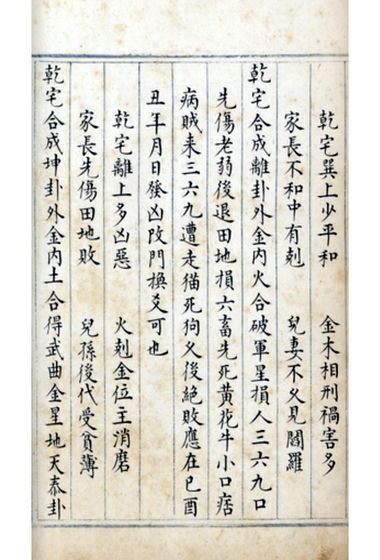 乾宅巽上少平和　金木相刑禍害多
家長不和中有剋　兒妻不久見閻羅
乾宅合成離卦外金内火合破軍星損人三六九口
先傷老弱後退田地損六畜先死黄花牛小口痞
病賊来三六九遭走猫死狗久後絶敗應在巳酉
丑年月日發凶改門換爻可也
乾宅離上多凶惡　火剋金位主消磨
家長先傷田地敗　兒孫後代受貧薄
乾宅合成坤卦外金内土合得武曲金星地天泰卦